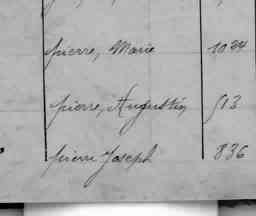 pierre, Marie 1034
pierre, Augustin, 513
pierre Joseph 836